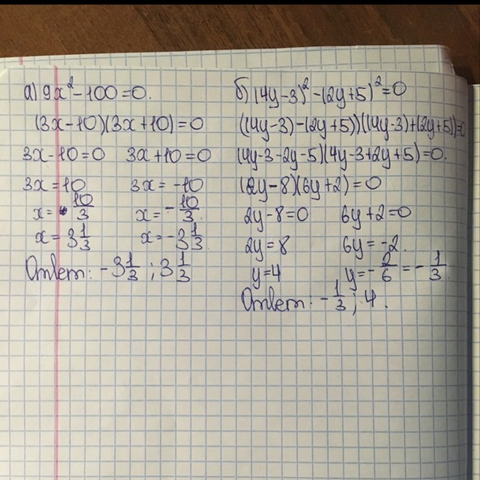 а) 9x² - 100 = 0.
(3x - 10)(3x + 10) = 0
3x - 10 = 0 3x + 10 = 0
3x = 10 3x = -10
x = 10/3 x = -10/3
x = 3 1/3 x = -3 1/3
Ответ: -3 1/3 ; 3 1/3
б) (4y - 3)² - (2y + 5)² = 0
((4y - 3) - (2y + 5))((4y - 3) + (2y + 5)) = 0
(4y - 3 - 2y - 5)(4y - 3 + 2y + 5) = 0.
(2y - 8)(6y + 2) = 0
2y - 8 = 0 6y + 2 = 0
2y = 8 6y = -2
y = 4 y = -2/6 = -1/3
Ответ: -1/3 ; 4.